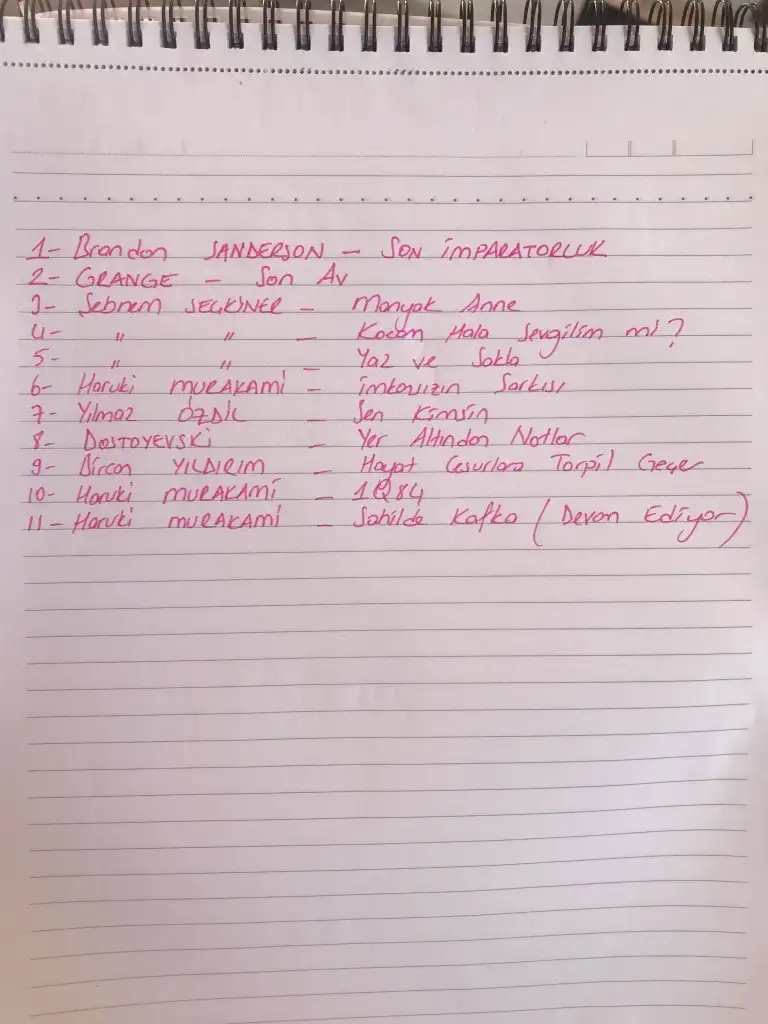 1- Brandon SANDERSON - SON İMPARATORLUK
2- GRANGE - Son Av
3- Şebnem SEÇKİNER - Manyak Anne
4- " " - Kocam Hala Sevgilim mi?
5- " " - Yaz ve Sakla
6- Haruki MURAKAMİ - İmkansızın Şarkısı
7- Yılmaz ÖZDİL - Sen Kimsin
8- DOSTOYEVSKİ - Yer Altından Notlar
9- Bircan YILDIRIM - Hayat Cesurlara Torpil Geçer
10- Haruki MURAKAMİ - 1Q84
11- Haruki MURAKAMİ - Sahilde Kafka (Devam Ediyor)